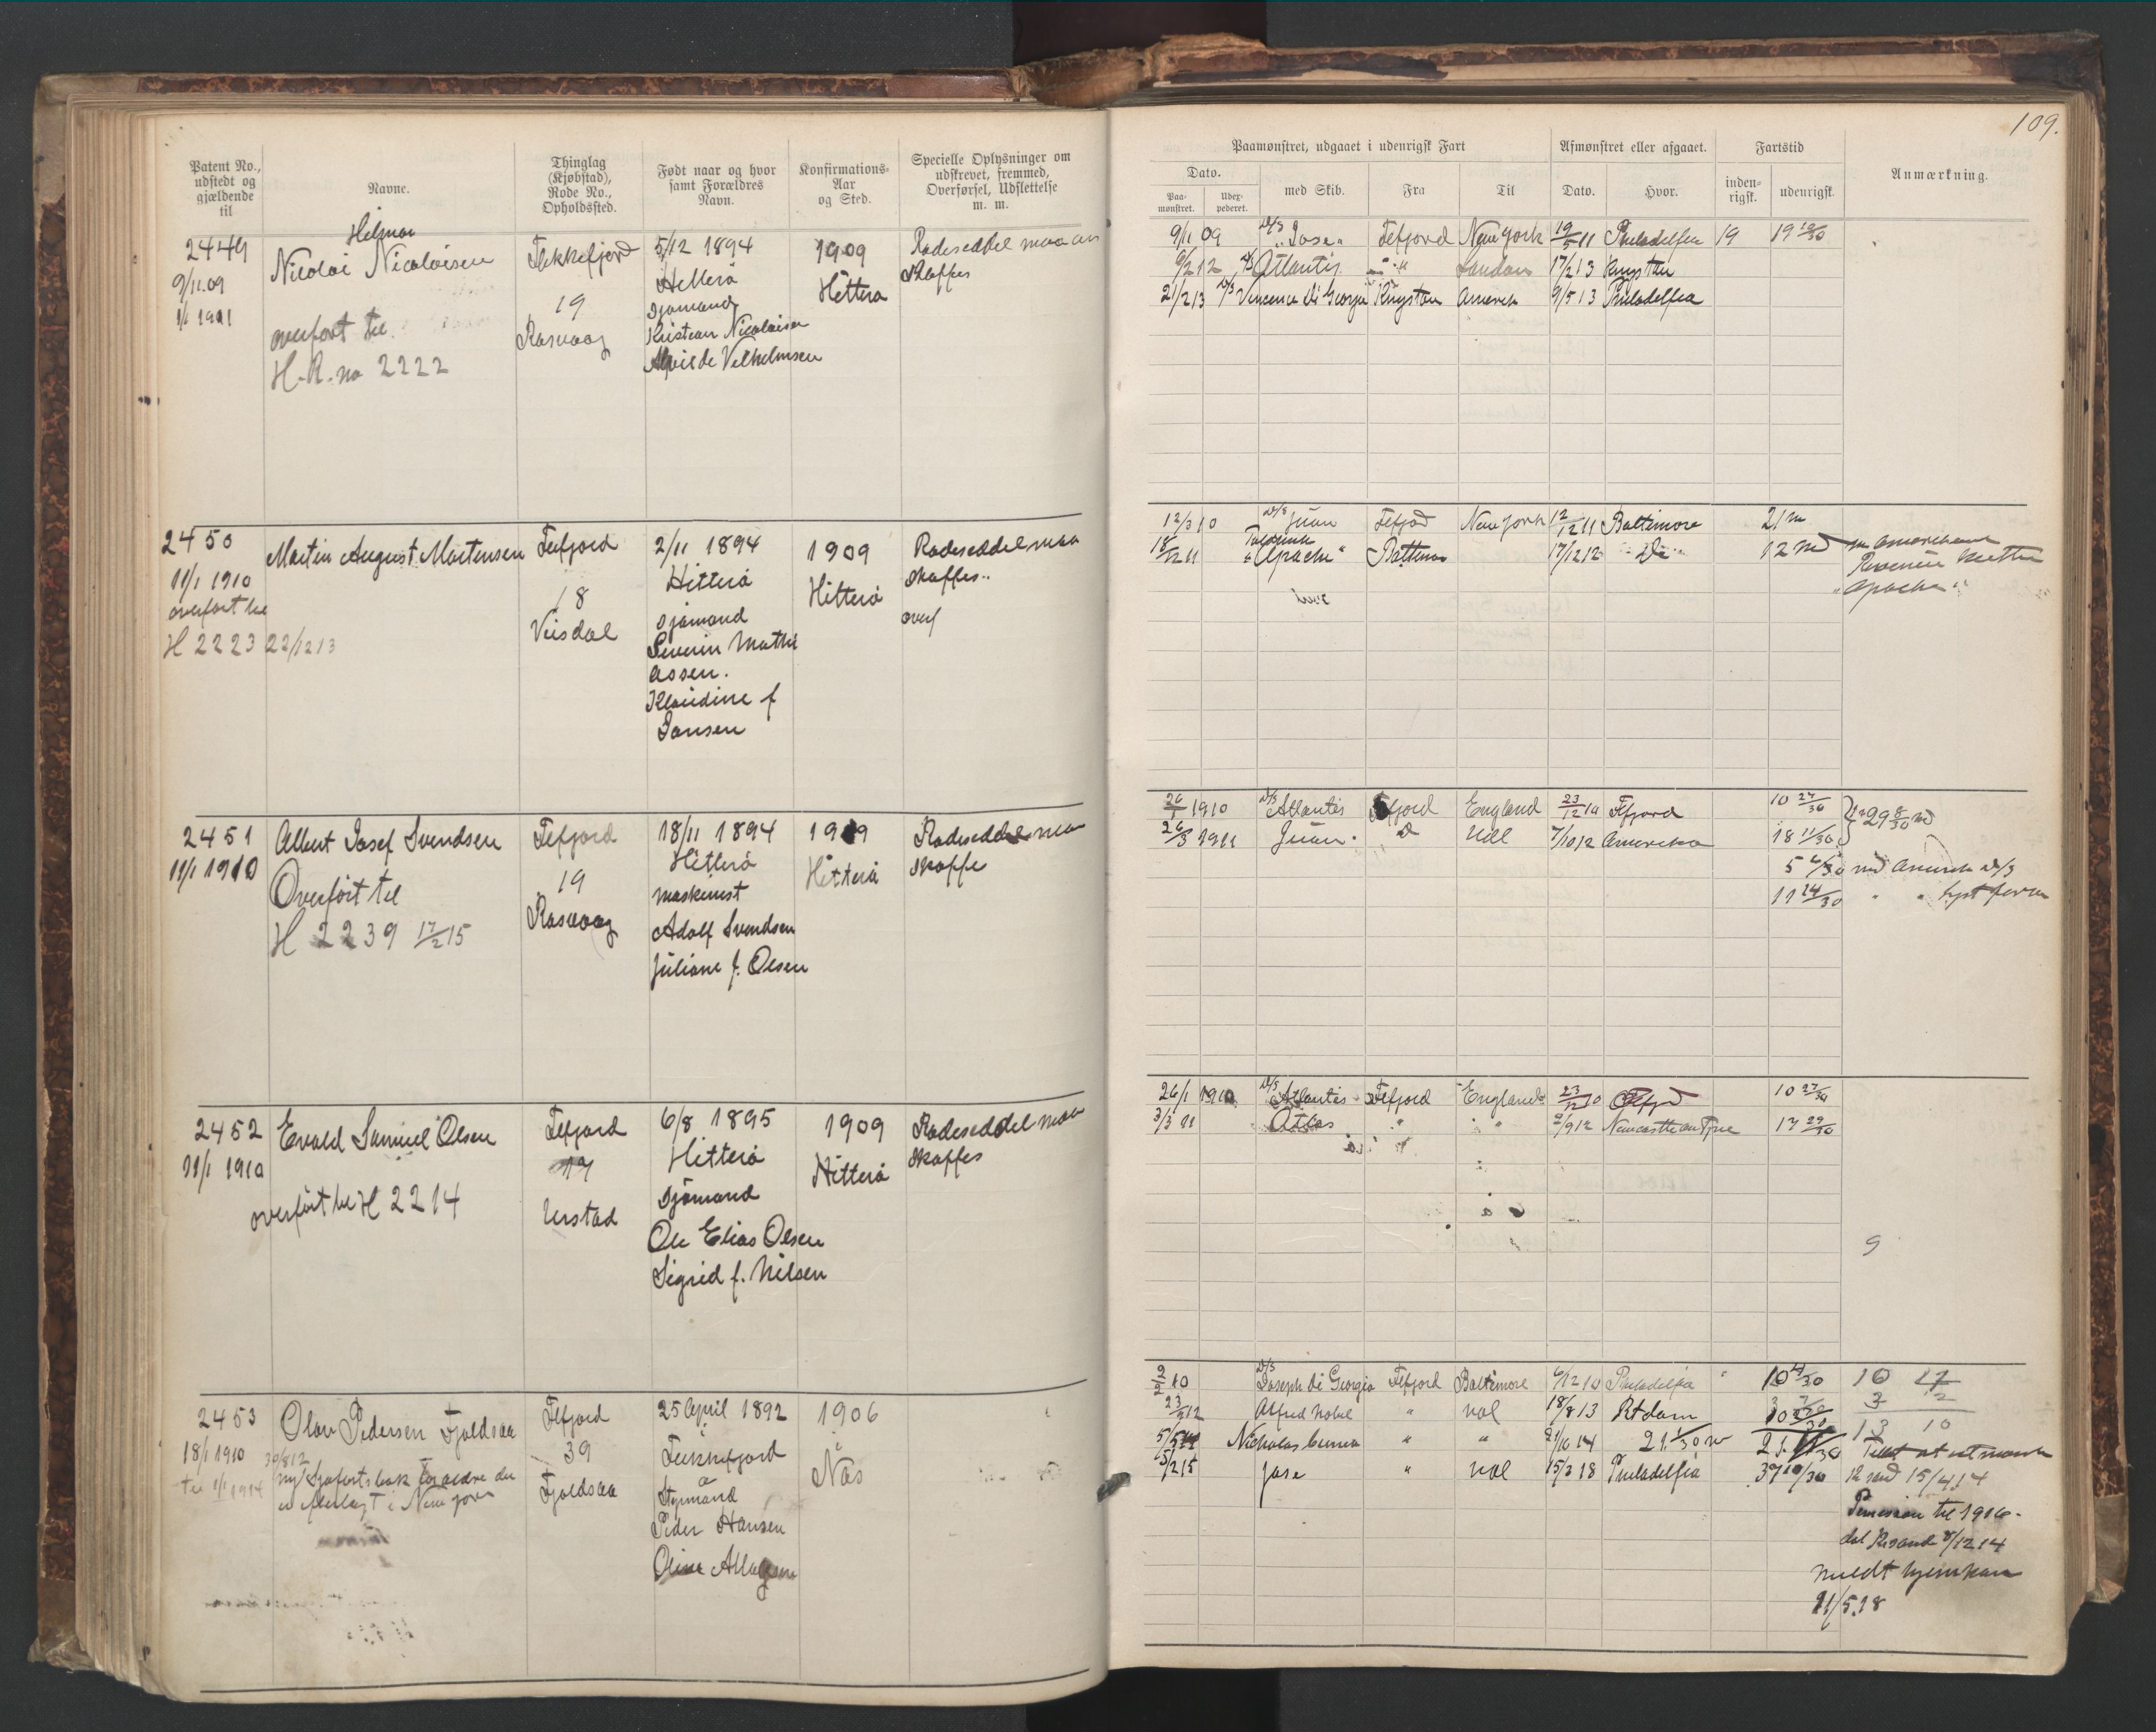 109.
Patent No., udstedt og gjældende til
Navne.
Thinglag (Kjøbstad), Rode No., Opholdssted.
Født naar og hvor samt Forældres Navn.
Konfirmations-Aar og Sted.
Specielle Oplysninger om udskrevet, fremmed, Overførsel, Udslettelse m. m.
Paamønstret, udgaaet i udenrigsk Fart
Afmønstret eller afgaaet.
Fartstid
Anmærkning.
Dato.
Paa-mønstret.
Uder-pederet.
med Skib.
Fra
Til
Dato.
Hvor.
inden-rigsk.
udenrigsk.
2449
9/11.09
1/1 1911
Hilmar
Nicolai Nicolaisen
overført til
H.R. no 2222
Flekkefjord
19
Rasvaag
5/12 1894
Hitterø
Sjømand
Kristian Nicolaisen
Alvilde Vilhelmsen
1909
Hitterø
Rodeseddel maa
skaffes
9/11 09 D/S "Jose" Fefjord New York 19/5 11 Philadelfia 19 19 10/30
6/2 12 D/S Atlantis " " London 17/2 13 Kingston
21/2 13 D/S Vincenzo di Giorgio Kingston Amerik 9/5 13 Philadelfia
2450
11/1 1910
overført til
H 2223 22/12 13
Martin August Mortensen
Fefjord
18
Veisdal
2/11 1894
Hitterø
Sjømand
Severin Mathi
assen.
Klaudine f
Jansen
1909
Hitterø
Rodeseddel maa
skaffes..
overf
12/3 10 D/S Juan Fefjod New York 12/12 11 Baltimore 21 m
18/12 11 "Apache" Baltimor 17/12 12 Do 12 md
m amerikansk
Revenue Kutter
"Apache"
2451
11/1 1910
Albert Josef Svendsen
Overført til
H 2239 17/2 15
Fefjord
19
Rasvaag
18/11 1894
Hitterø
maskinist
Adolf Svendsen
Juliane f. Olsen
1909
Hitterø
Rodeseddel maa
skaffe
26/1 1910 D/S Atlantis Fefjord England 23/12 10 Ffjord 10 27/30
26/3 1911 Juan d Udl 7/10 12 Amerika 18 11/30
29 8/30 md
5 6/30 md Amerik D/S
11 24/30 " "
2452
11/1 1910
Evald Samuel Olsen
overført til H 2214
Fefjord
17
Urstad
6/8 1895
Hitterø
Sjømand
Ole Elias Olsen
Sigrid f. Nilsen
1909
Hitterø
Rodeseddel maa
skaffes
26/1 1910 D/S Atlantis Fefjord England 23/12 10 Ffjd 10 27/30
3/3 11 Atlas " " 2/9 12 Newcastle on Tyne 17 29/30
9
2453
18/1 1910
til 1/1 1914
Olav Pedersen Fjoldsaa
30/8 12
ny Sjøfartsbok
i New York
Ffjord
39
Fjoldsaa
25 April 1892
Fekkefjord
Styrmand
Peder Hansen
Oline
1906
Nås
2/2 10 D/S Joseph di Giorgio Fefjord Baltimore 6/12 10 Philadelfia 10 4/30 10 17
23/5 12 Alfred Nobel " udl 18/8 13 Rtdam 3 2
5/5 14 Nicholas Cuneo " " 21/10 14 13 10
15/2 15 Jose " udl 15/3 18 Philadelfia 37 10/30
12 md 15/4 14
Permission til 1916
8/12 14
meldt hjemkom
21/5.18